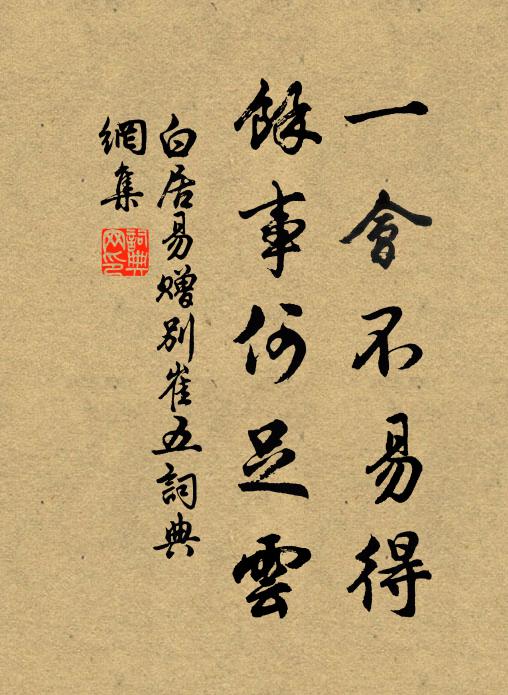 一會不易得
餘事何足雲
白居易贈別崔五詞典
網集
詞典
网印